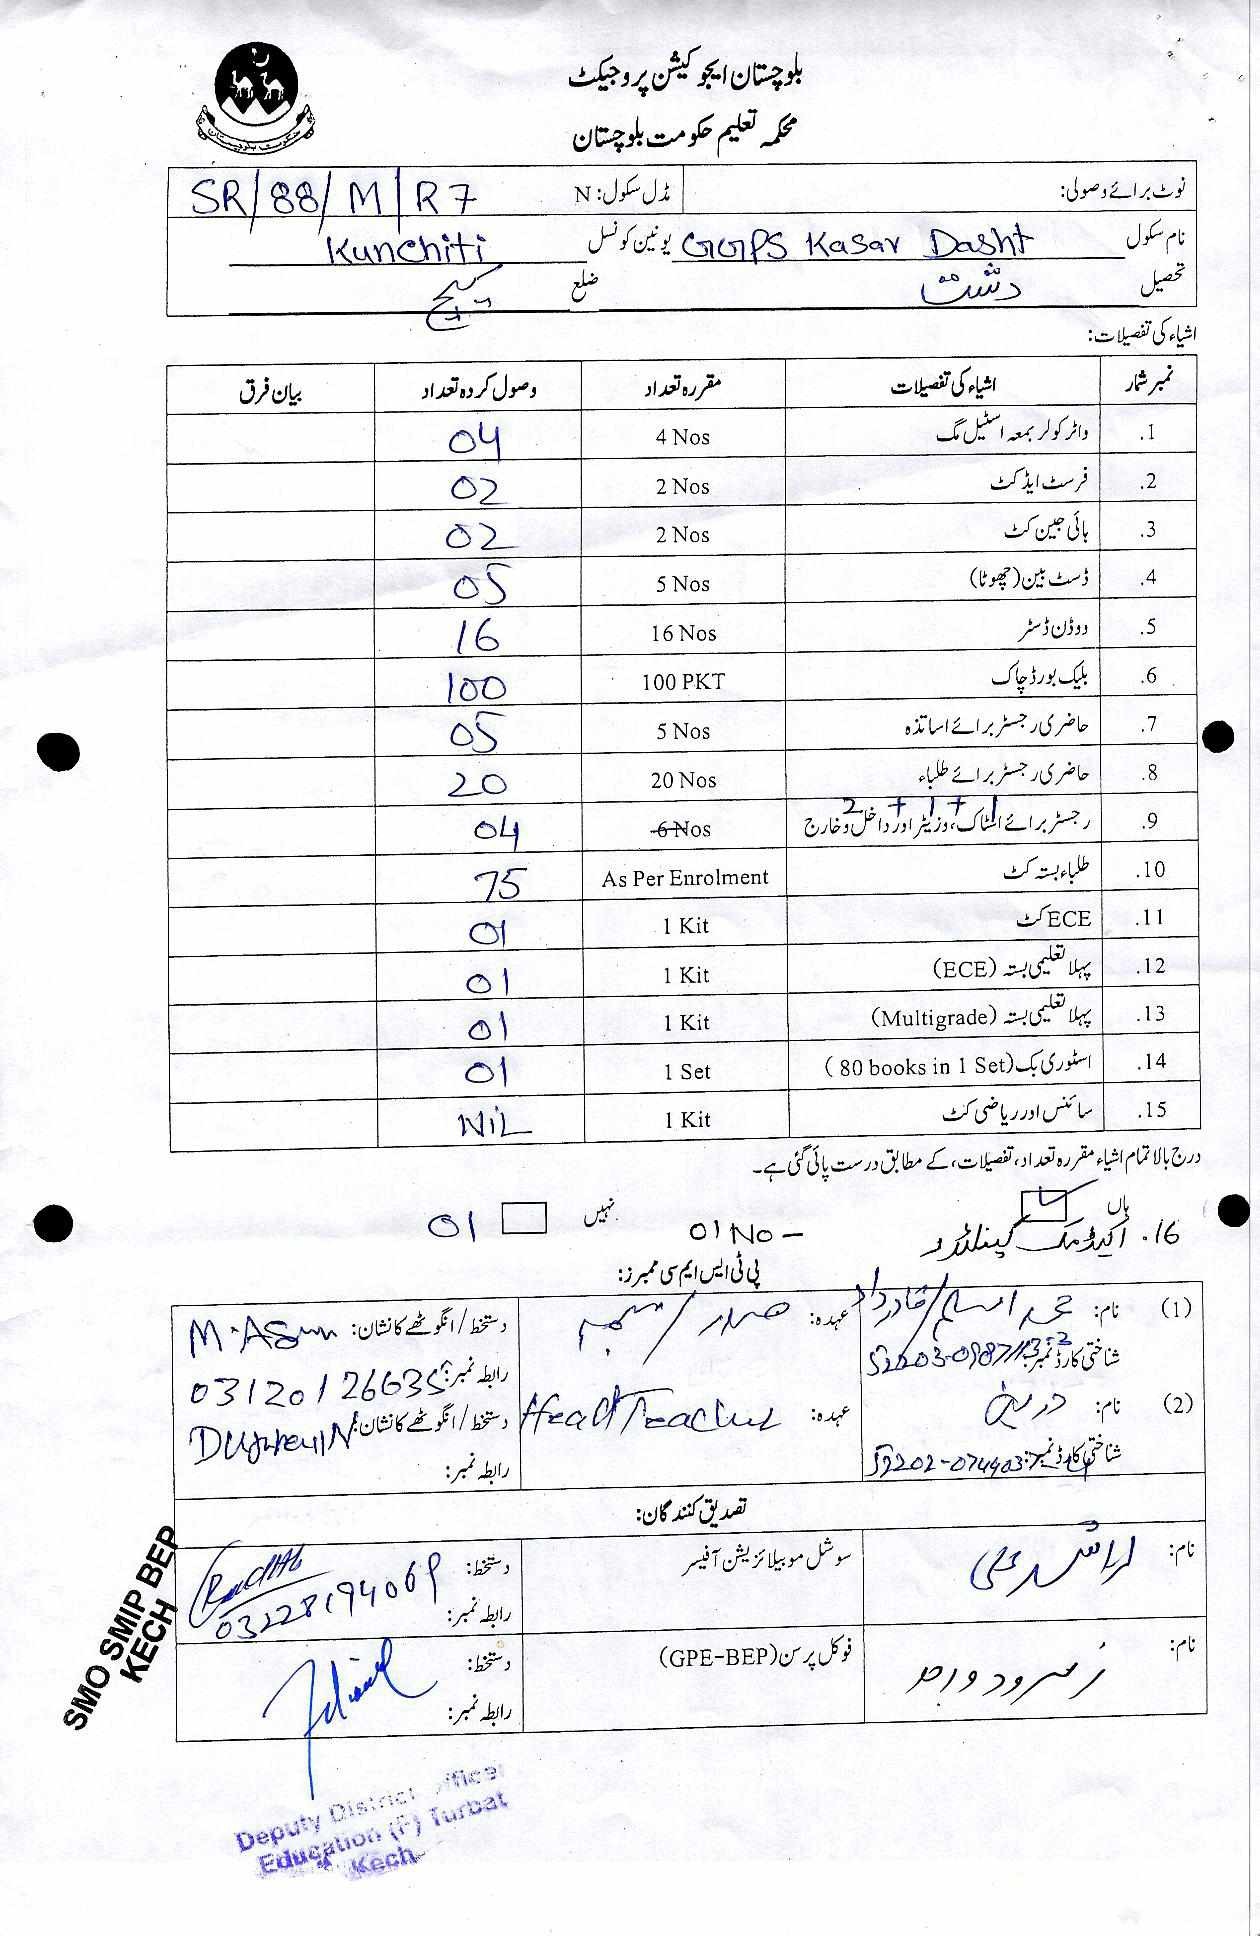 بلوچستان ایجوکیشن پروجیکٹ
محکمہ تعلیم حکومت بلوچستان
حکومت بلوچستان
نوٹ برائے وصولی: مڈل سکول: N SR/88/M/R7
نام سکول GGPS Kasar Dasht یونین کونسل Kunchiti
تحصیل دشت ضلع کیچ
اشیاء کی تفصیلات:
نمبر شمار اشیاء کی تفصیلات مقررہ تعداد وصول کردہ تعداد بیان فرق
1. واٹر کولر بمعہ اسٹیل مگ 4 Nos 04
2. فرسٹ ایڈ کٹ 2 Nos 02
3. ہائی جین کٹ 2 Nos 02
4. ڈسٹ بین (چھوٹا) 5 Nos 05
5. ووڈن ڈسٹر 16 Nos 16
6. بلیک بورڈ چاک 100 PKT 100
7. حاضری رجسٹر برائے اساتذہ 5 Nos 05
8. حاضری رجسٹر برائے طلباء 20 Nos 20
2 + 1 + 1
9. رجسٹر برائے اسٹاک، وزیٹر اور داخل و خارج 6 Nos 04
10. طلباء بستہ کٹ As Per Enrolment 75
11. ECE کٹ 1 Kit 01
12. پہلا تعلیمی بستہ (ECE) 1 Kit 01
13. پہلا تعلیمی بستہ (Multigrade) 1 Kit 01
14. اسٹوری بک (80 books in 1 Set) 1 Set 01
15. سائنس اور ریاضی کٹ 1 Kit NiL
درج بالا تمام اشیاء مقررہ تعداد، تفصیلات، کے مطابق درست پائی گئی ہے۔
ہاں نہیں
16. اکیڈمک کیلنڈر 01 No - 01
پی ٹی ایس ایم سی ممبرز:
(1) نام: محمد اسلم/قادرداد عہدہ: صدر/ دستخط/انگوٹھے کا نشان: M.Aslm
شناختی کارڈ نمبر: رابطہ نمبر: 03120126635
(2) نام: عہدہ: Head Teacher دستخط/انگوٹھے کا نشان:
شناختی کارڈ نمبر: رابطہ نمبر:
تصدیق کنندگان:
نام: سوشل موبیلائزیشن آفیسر دستخط:
رابطہ نمبر: 03228194069
نام: فوکل پرسن (GPE-BEP) دستخط:
رابطہ نمبر:
SMO SMIP BEP
KECH
Deputy District Officer
Education (F) Turbat
Kech